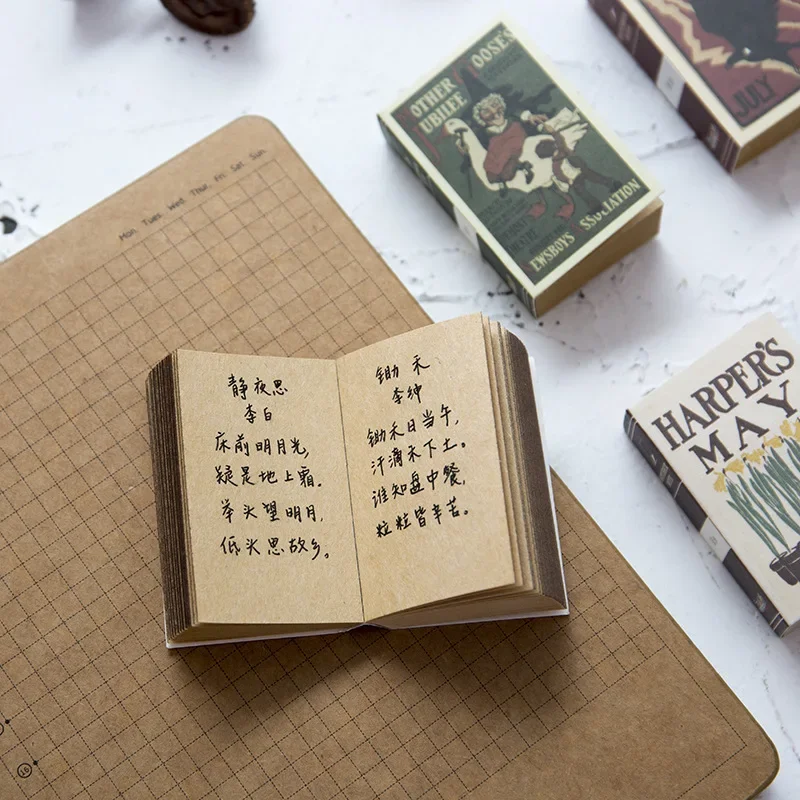 Mon Tues Wed Thur Fri Sat Sun
MOTHER GOOSE'S
JUBILEE
EWSBOYS ASSOCIATION
JULY
HARPER'S
MAY
静夜思
李白
床前明月光,
疑是地上霜.
举头望明月,
低头思故乡。
锄禾
李绅
锄禾日当午,
汗滴禾下土。
谁知盘中餐,
粒粒皆辛苦。